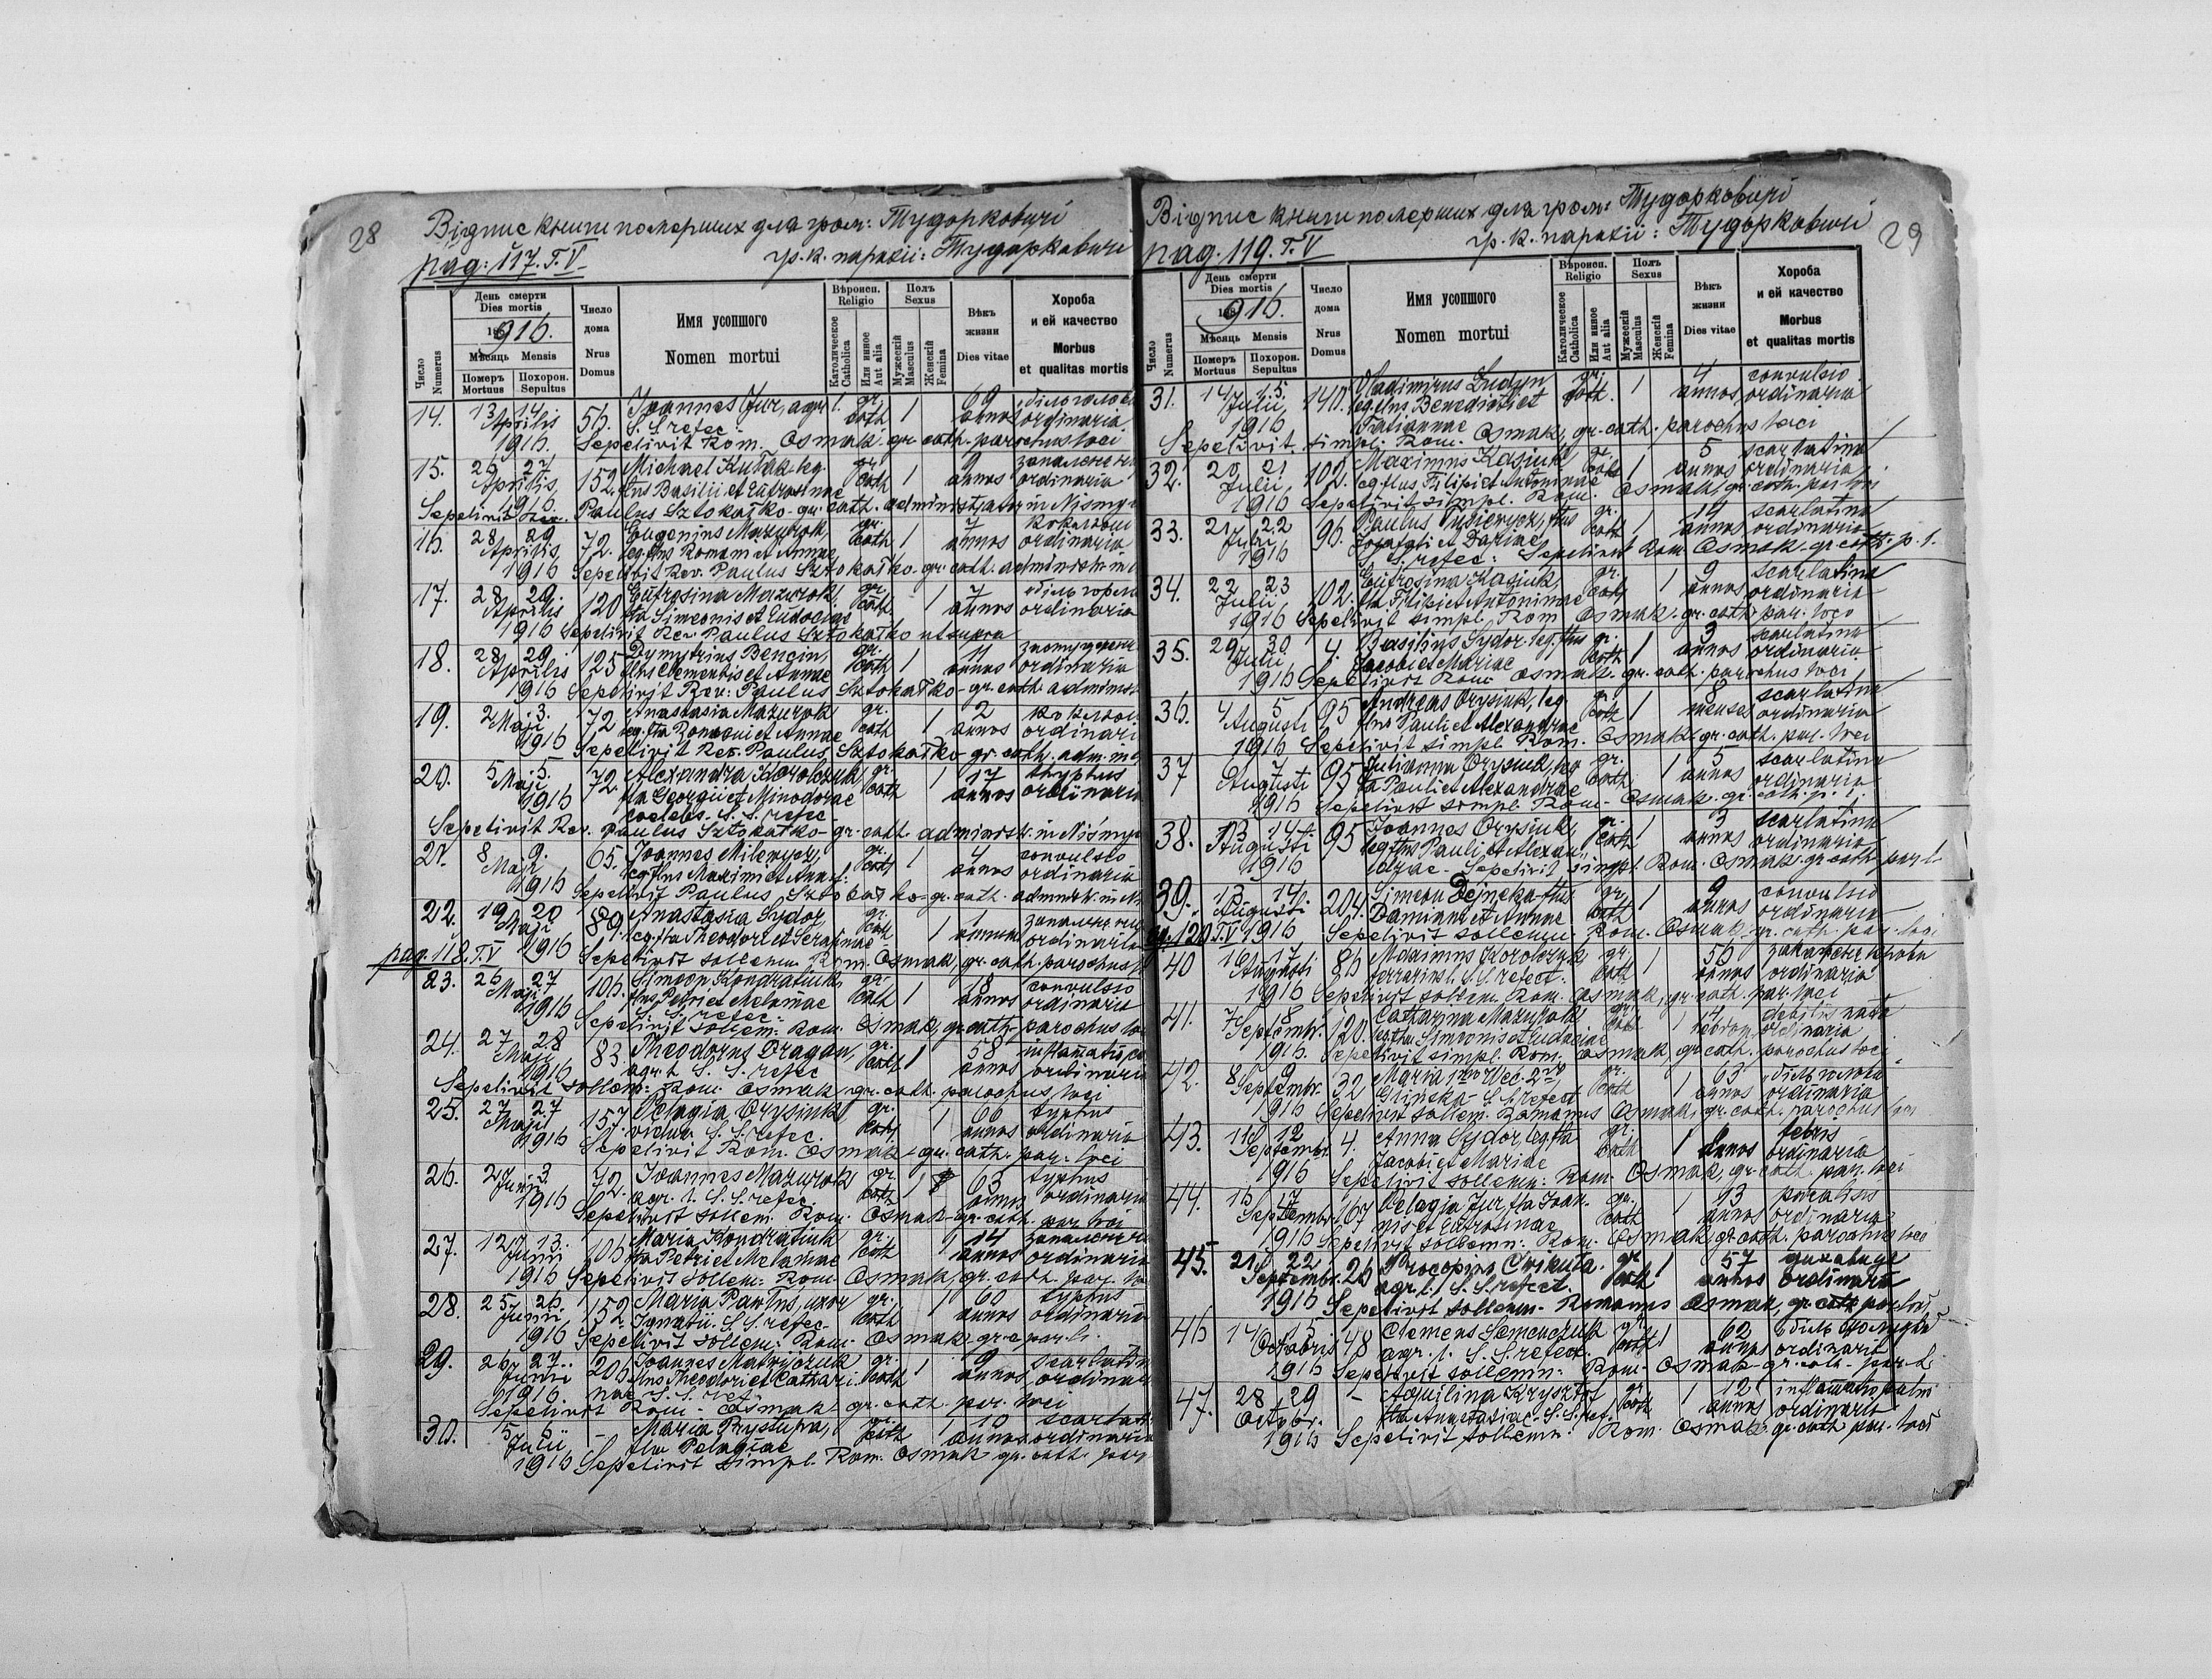 28
Відпис книги померших для гром: Тудорковичі
гр. к. парохії: Тудорковичі
pag: 117. T. V
Число Numerus
День смерти Dies mortis
1916.
Мѣсяць Mensis
Померъ Mortuus
Похорон. Sepultus
Число дома Nrus Domus
Имя усопшого Nomen mortui
Вѣроисп. Religio
Католическое Catholica
Или иное Aut alia
Полъ Sexus
Мужескій Masculus
Женскій Femina
Вѣкъ жизни Dies vitae
Хороба и ей качество Morbus et qualitas mortis
14. 13 14 56. Joannes Jur, agr. l. gr. 1 69
Aprilis S. S. refec. cath annos ordinaria
1916. Sepelivit Rom. Osmak gr. cath. parochus loci
15. 26 27 152. Michael Kułak leg. gr. 1 9
Aprilis flus Basilii et Eufrosinae cath annos ordinaria
1916
Sepelivit Rev. Paulus Sztokałko - gr. cath. administrator in
16. 28 29 72. Eugenius Mazurok gr. 1 7
Aprilis leg. flus Romani et Annae cath annos ordinaria
1916 Sepelivit Rev. Paulus Sztokałko - gr. cath. administr. in
17. 28 29. 120 Eufrosina Mazurok gr. 1 7
Aprilis fla Simeonis et Eudociae cath annos ordinaria
1916 Sepelivit Rev. Paulus Sztokałko ut supra
18. 28 29. 125 Dymytrius Bencin, gr. 1 11
Aprilis flus Clementis et Annae cath annos ordinaria
1916 Sepelivit Rev: Paulus Sztokałko - gr. cath. administ
19. 2 3. 72 Anastasia Mazurok gr. 1 2
Maji leg. fla Romani et Annae cath annos ordinari
1916 Sepelivit Rev. Paulus Sztokałko gr. cath. adm. in
20. 5 5. 72. Alexandra Korolczuk gr. 1 17 thyphus
Maji fla Georgii et Minodorae cath annos ordinaria
1916 coelebs. S. S. refec.
Sepelivit Rev. Paulus Sztokałko - gr. cath. administr. in
21. 8 9. 65. Joannes Milewycz, gr. 1 4 convulsio
Maji leg. flus Maximi et Annae cath annos ordinaria
1916 Sepelivit Paulus Sztokałko - gr. cath. administr. in
22. 19 20 89. Anastasia Sydor gr. 1 1
Maji leg. fla Theodori et Serafinae cath annum ordinaria
pag. 118. T. V 1916 Sepelivit sollemn. Rom. Osmak, gr. cath. parochus
23. 26 27 106. Simeon Kondratiuk gr. 1 18 convulsio
Maji flus Petri et Melaniae cath annos ordinaria
1916 S. S. refec.
Sepelivit sollem: Rom. Osmak, gr. cath. parochus
24. 27 28 83. Theodorus Dragan, gr. 1 58
Maji agr. l. S. S. refec cath annos ordinaria
1916
Sepelivit sollem: Rom. Osmak, gr. cath. parochus loci
25. 27 27 157. Pelagia Orysiuk gr. 1 66 typhus
Maji vidua. S. S. refec. cath annos ordinaria
1916 Sepelivit Rom. Osmak - gr. cath. par. loci
26. 2 3 72. Joannes Mazurok gr. 1 63 typhus
Junii agr. l. S. S. refec. cath annos ordinaria
1916 Sepelivit sollem. Rom. Osmak - gr. cath. par loci
27. 12 13. 106 Maria Kondratiuk gr. 1 14
Junii fla Petri et Melaniae cath annos ordinaria
1916 Sepelivit sollem: Rom. Osmak, gr. cath. par.
28. 25 26 152. Maria Pawlus, uxor gr. 1 60 typhus
Junii Ignatii. S. S. refec. cath annos ordinaria
1916 Sepelivit sollem: Rom. Osmak gr. c. par. l.
29. 26 27. 206 Joannes Matwijczuk gr. 1 9
Junii flus Theodori et Cathari- cath annos ordinar
1916. nae S. S. ref.
Sepelivit Rom. Osmak gr. cath. par. loci
30. 5 – Maria Prystupa, gr. 1 10
Julii fla Pelagiae cath annos ordinaria
1916 Sepelivit simpl. Rom. Osmak gr. cath. par
29
Відпис книги померших для гром: Тудорковичі
гр. к. парохії: Тудорковичі
pag. 119. T. V
Число Numerus
День смерти Dies mortis
1916.
Мѣсяць Mensis
Померъ Mortuus
Похорон. Sepultus
Число дома Nrus Domus
Имя усопшого Nomen mortui
Вѣроисп. Religio
Католическое Catholica
Или иное Aut alia
Полъ Sexus
Мужескій Masculus
Женскій Femina
Вѣкъ жизни Dies vitae
Хороба и ей качество Morbus et qualitas mortis
31. 14 15. 140. Vladimirus gr. 1 4 convulsio
Julii leg. flus Benedicti et cath. annos ordinaria
1916 Tatiannae
Sepelivit. simpl. Rom. Osmak, gr. cath. parochus loci
32. 20 21 102. Maximus Kasiuk gr. 1 5 scarlatina
Julii leg. flus Filipi et Antoninae cath annos ordinaria
1916 Sepelivit simpl. Rom. Osmak, gr. cath. par. loci
33. 21 22 96. Paulus flus gr. 1 14 scarlatina
Julii Josafati et Dariae cath annos ordinaria
1916 S. S. refec: Sepelivit Rom. Osmak - gr. cath. p. l.
34. 22 23 102. Eufrosina Kasiuk gr. 1 9 scarlatina
Julii fla Filipi et Antoninae cath annos ordinaria
1916 Sepelivit simpl. Rom Osmak - gr. cath par. loco
35. 29 30 4. Basilius Sydor leg. flus gr. 1 3 scarlatina
Julii Jacobi et Mariae cath annos ordinaria
1916 Sepelivit Rom. Osmak - gr. cath. parochus loci
36. 4 5 95 Andreas Orysiuk, leg. gr. 1 8 scarlatina
Augusti flus Pauli et Alexandrae cath menses ordinaria
1916 Sepelivit simpl. Rom. Osmak gr. cath. par. loci
37 6 7 95 Julianna Orysiuk, leg gr. 1 5 scarlatina
Augusti fla Pauli et Alexandrae cath annos ordinaria
1916 Sepelivit simpl. Rom. Osmak. gr. cath p. l.
38. 13 14 95 Joannes Orysiuk, gr. 1 3 scarlatina
Augusti leg. flus Pauli et Alexan- cath annos ordinaria
1916 drae - Sepelivit simpl. Rom. Osmak. gr. cath. par l.
39. 13 14 204. Simeon Dejneka flus gr. 1 9 convulsio
Augusti Damiani et Annae cath annos ordinaria
pag. 120 T. V 1916 Sepelivit sollemn. Rom. Osmak, gr. cath. par. loci
40 16 17 86 Maximus Korolczuk gr. 1 56
Augusti S. S. refect. cath annos ordinaria
1916 Sepelivit sollem. Rom. Osmak, gr. cath. par. loci
41. 7 8 120. Catharina Mazurok gr. 1 4 debilis nata
Septembr. leg. fla Simeonis et Eudociae cath hebdom. ordinaria
1916. Sepelivit simpl. Rom. Osmak, gr. cath. parochus loci
42. 8 9 32 Maria 1mo Web. 2do gr. 1 63
Septembr. Glinska - S. S. refect cath annos ordinaria
1916 Sepelivit sollem. Romanus Osmak, gr. cath. parochus loci
43. 11 12 4. Anna Sydor leg. fla gr. 1 febris
Septembr. Jacobi et Mariae cath annos ordinaria
1916 Sepelivit sollemn: Rom. Osmak, gr. cath. par. loci
44. 16 17 167 Pelagia Jur, fla Joan- gr. 1 13 paralisis
Septembr. nis et Eufrosinae cath annos ordinaria
1916 Sepelivit sollemn: Rom. Osmak, gr. cath. parochus loci
45. 21 22 26 Procopius gr 1 57
Septembr. agr. l. S. S. refect. cath annos ordinaria
1916 Sepelivit sollemn - Romanus Osmak, gr. cath par loci
46 14 15 48 Clemens Semenczuk gr. 1 62
Octobris agr. l. S. S. refect. cath annos ordinaria
1916 Sepelivit sollemn: Rom. Osmak - gr. cath - par. l.
47. 28 29 – Aquilina gr. 1 12
Octobr. fla Anastasiae - S. S. ref. cath annos ordinaria
1916 Sepelivit, sollemn: Rom. Osmak gr. cath par. loci